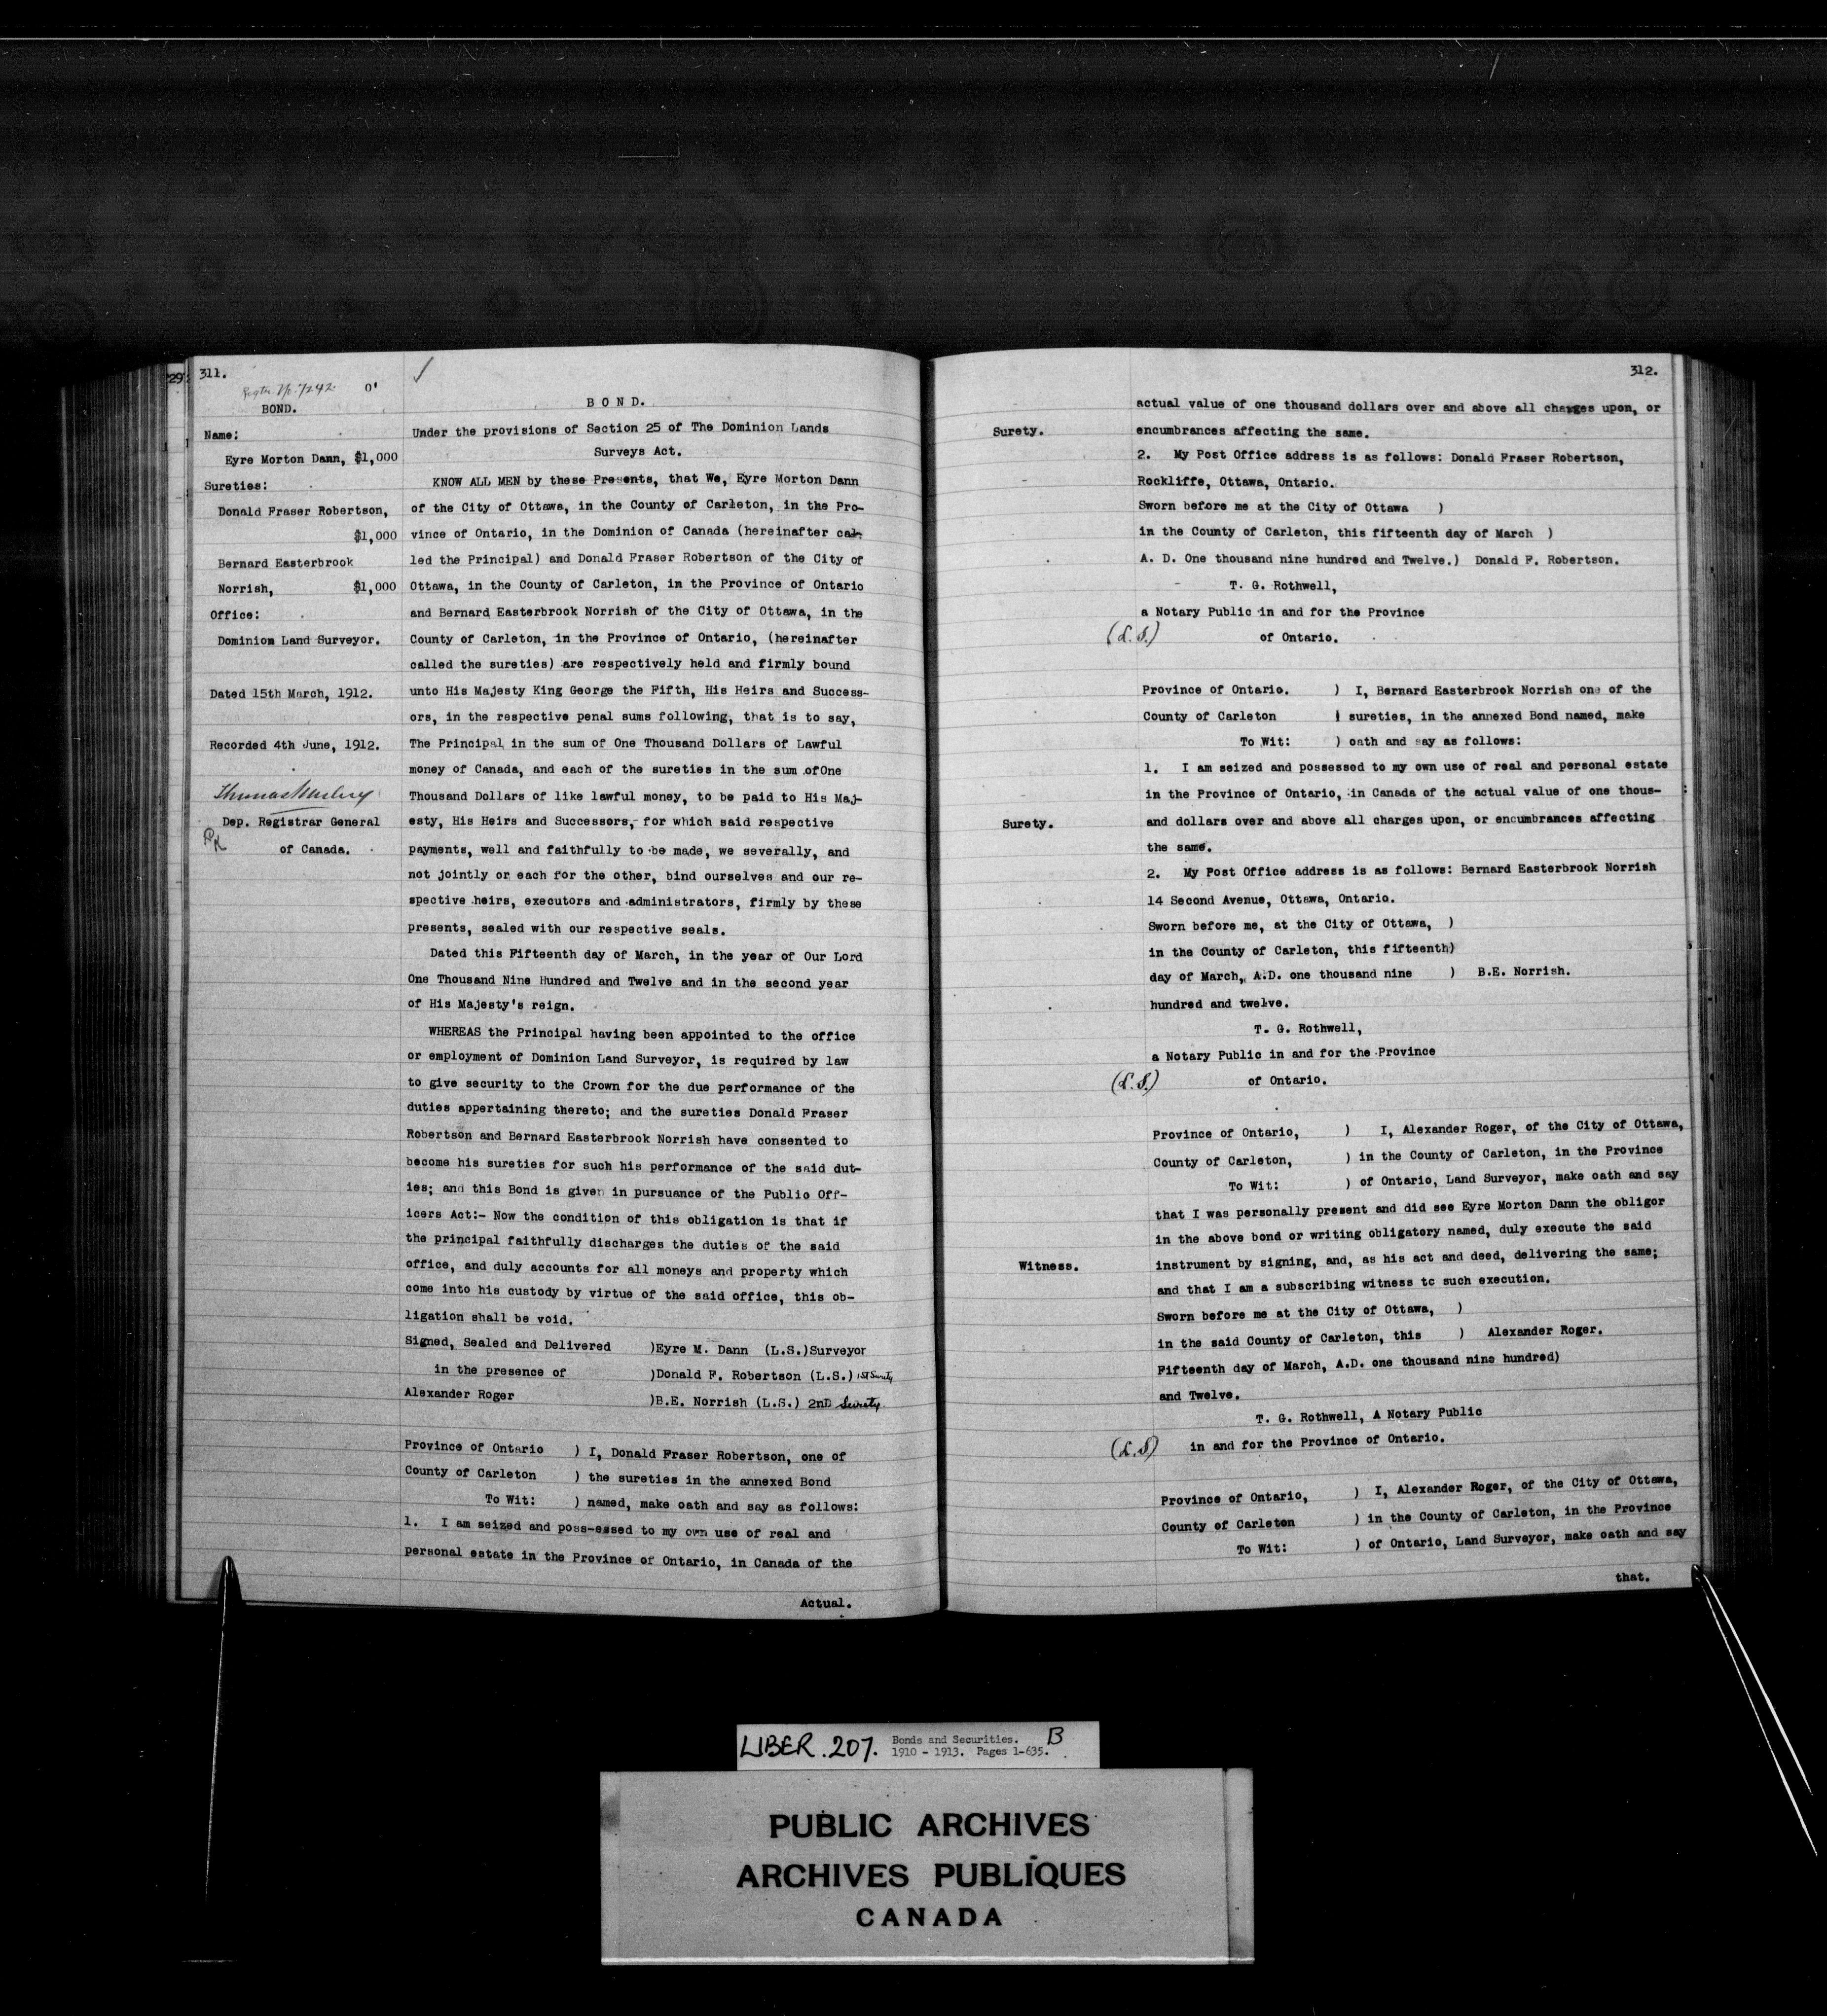 311.
BOND.
Name:
Eyre Morton Dann, $1,000
Sureties:
Donald Fraser Robertson,
$1,000
Bernard Easterbrook
Norrish, $1,000
Office:
Dominion Land Surveyor.
Dated 15th March, 1912.
Recorded 4th June, 1912.
Thomas Mulvey
Dep. Registrar General
of Canada.
B O N D.
Under the provisions of Section 25 of The Dominion Lands
Surveys Act.
KNOW ALL MEN by these Presents, that We, Eyre Morton Dann
of the City of Ottawa, in the County of Carleton, in the Pro-
vince of Ontario, in the Dominion of Canada (hereinafter cal-
led the Principal) and Donald Fraser Robertson of the City of
Ottawa, in the County of Carleton, in the Province of Ontario
and Bernard Easterbrook Norrish of the City of Ottawa, in the
County of Carleton, in the Province of Ontario, (hereinafter
called the sureties) are respectively held and firmly bound
unto His Majesty King George the Fifth, His Heirs and Success-
ors, in the respective penal sums following, that is to say,
The Principal in the sum of One Thousand Dollars of Lawful
money of Canada, and each of the sureties in the sum ofOne
Thousand Dollars of like lawful money, to be paid to His Maj-
esty, His Heirs and Successors, for which said respective
payments, well and faithfully to be made, we severally, and
not jointly or each for the other, bind ourselves and our re-
spective heirs, executors and administrators, firmly by these
presents, sealed with our respective seals.
Dated this Fifteenth day of March, in the year of Our Lord
One Thousand Nine Hundred and Twelve and in the second year
of His Majesty's reign.
WHEREAS the Principal having been appointed to the office
or employment of Dominion Land Surveyor, is required by law
to give security to the Crown for the due performance of the
duties appertaining thereto; and the sureties Donald Fraser
Robertson and Bernard Easterbrook Norrish have consented to
become his sureties for such his performance of the said dut-
ies; and this Bond is given in pursuance of the Public Off-
icers Act:- Now the condition of this obligation is that if
the principal faithfully discharges the duties of the said
office, and duly accounts for all moneys and property which
come into his custody by virtue of the said office, this ob-
ligation shall be void.
Signed, Sealed and Delivered )Eyre M. Dann (L.S.)Surveyor
in the presence of )Donald F. Robertson (L.S.) 1st Surety
Alexander Roger )B.E. Norrish (L.S.) 2nD Surety
Province of Ontario ) I, Donald Fraser Robertson, one of
County of Carleton ) the sureties in the annexed Bond
To Wit: ) named, make oath and say as follows:
1. I am seized and poss-essed to my own use of real and
personal estate in the Province of Ontario, in Canada of the
Actual.
312.
actual value of one thousand dollars over and above all charges upon, or
Surety. encumbrances affecting the same.
2. My Post Office address is as follows: Donald Fraser Robertson,
Rockliffe, Ottawa, Ontario.
Sworn before me at the City of Ottawa )
in the County of Carleton, this fifteenth day of March )
A. D. One thousand nine hundred and Twelve.) Donald F. Robertson.
T. G. Rothwell,
a Notary Public in and for the Province
(L.S.) of Ontario.
Province of Ontario. ) I, Bernard Easterbrook Norrish one of the
County of Carleton ) sureties, in the annexed Bond named, make
To Wit: ) oath and say as follows:
1. I am seized and possessed to my own use of real and personal estate
in the Province of Ontario, in Canada of the actual value of one thous-
Surety. and dollars over and above all charges upon, or encumbrances affecting
the same.
2. My Post Office address is as follows: Bernard Easterbrook Norrish
14 Second Avenue, Ottawa, Ontario.
Sworn before me, at the City of Ottawa, )
in the County of Carleton, this fifteenth)
day of March, A.D. one thousand nine ) B.E. Norrish.
hundred and twelve.
T. G. Rothwell,
a Notary Public in and for the Province
(L.S.) of Ontario.
Province of Ontario, ) I, Alexander Roger, of the City of Ottawa,
County of Carleton, ) in the County of Carleton, in the Province
To Wit: ) of Ontario, Land Surveyor, make oath and say
that I was personally present and did see Eyre Morton Dann the obligor
in the above bond or writing obligatory named, duly execute the said
Witness. instrument by signing, and, as his act and deed, delivering the same;
and that I am a subscribing witness to such execution.
Sworn before me at the City of Ottawa, )
in the said County of Carleton, this ) Alexander Roger.
Fifteenth day of March, A.D. one thousand nine hundred)
and Twelve.
T. G. Rothwell, A Notary Public
(L.S) in and for the Province of Ontario.
Province of Ontario, ) I, Alexander Roger, of the City of Ottawa,
County of Carleton ) in the County of Carleton, in the Province
To Wit: ) of Ontario, Land Surveyor, make oath and say
that.
LIBER.207. Bonds and Securities. B
1910 - 1913. Pages 1-635.
PUBLIC ARCHIVES
ARCHIVES PUBLIQUES
CANADA